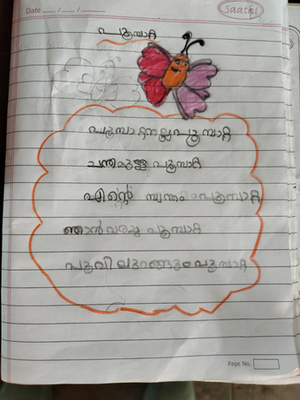 Date
Saathi
പൂമ്പാറ്റ
പൂമ്പാറ്റ നല്ല പൂമ്പാറ്റ
ചന്തമുള്ള പൂമ്പാറ്റ
എന്റെ സ്വന്തം പൂമ്പാറ്റ
ഞാൻ വരച്ച പൂമ്പാറ്റ
പൂവിലുറങ്ങും പൂമ്പാറ്റ
Page No.